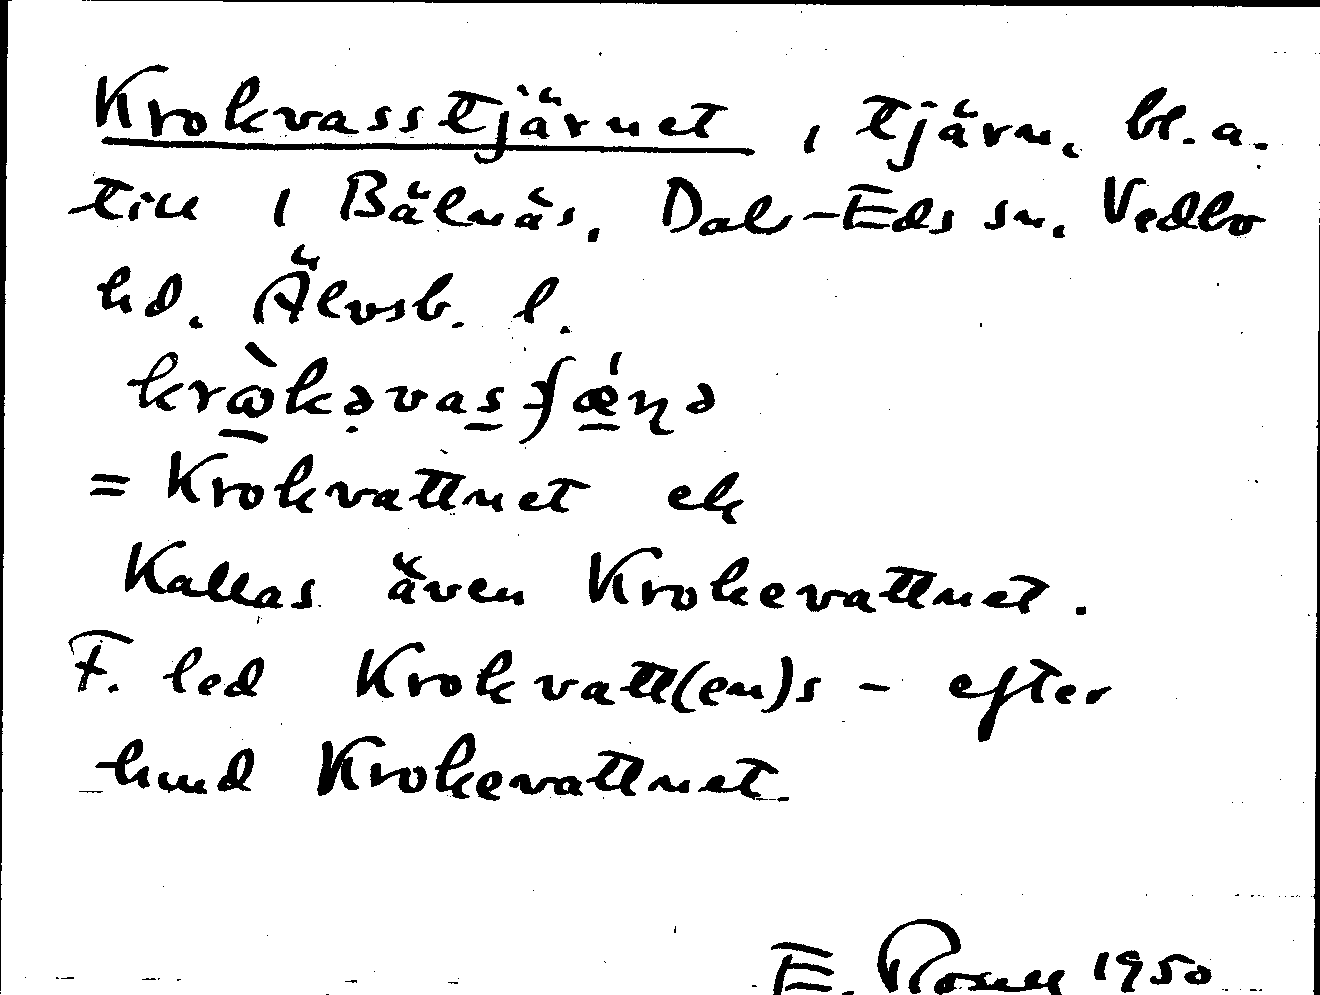 Krokvasstjärnet, tjärn, bl.a.
till 1 Bälnäs, Dals-Eds sn, Vedbo
hd. Älvsb. l.
= Krokvattnet ek
Kallas även Krokevattnet.
F. led Krokvatt(en)s - efter
hmd Krokevattnet.
E. Rosell 1950